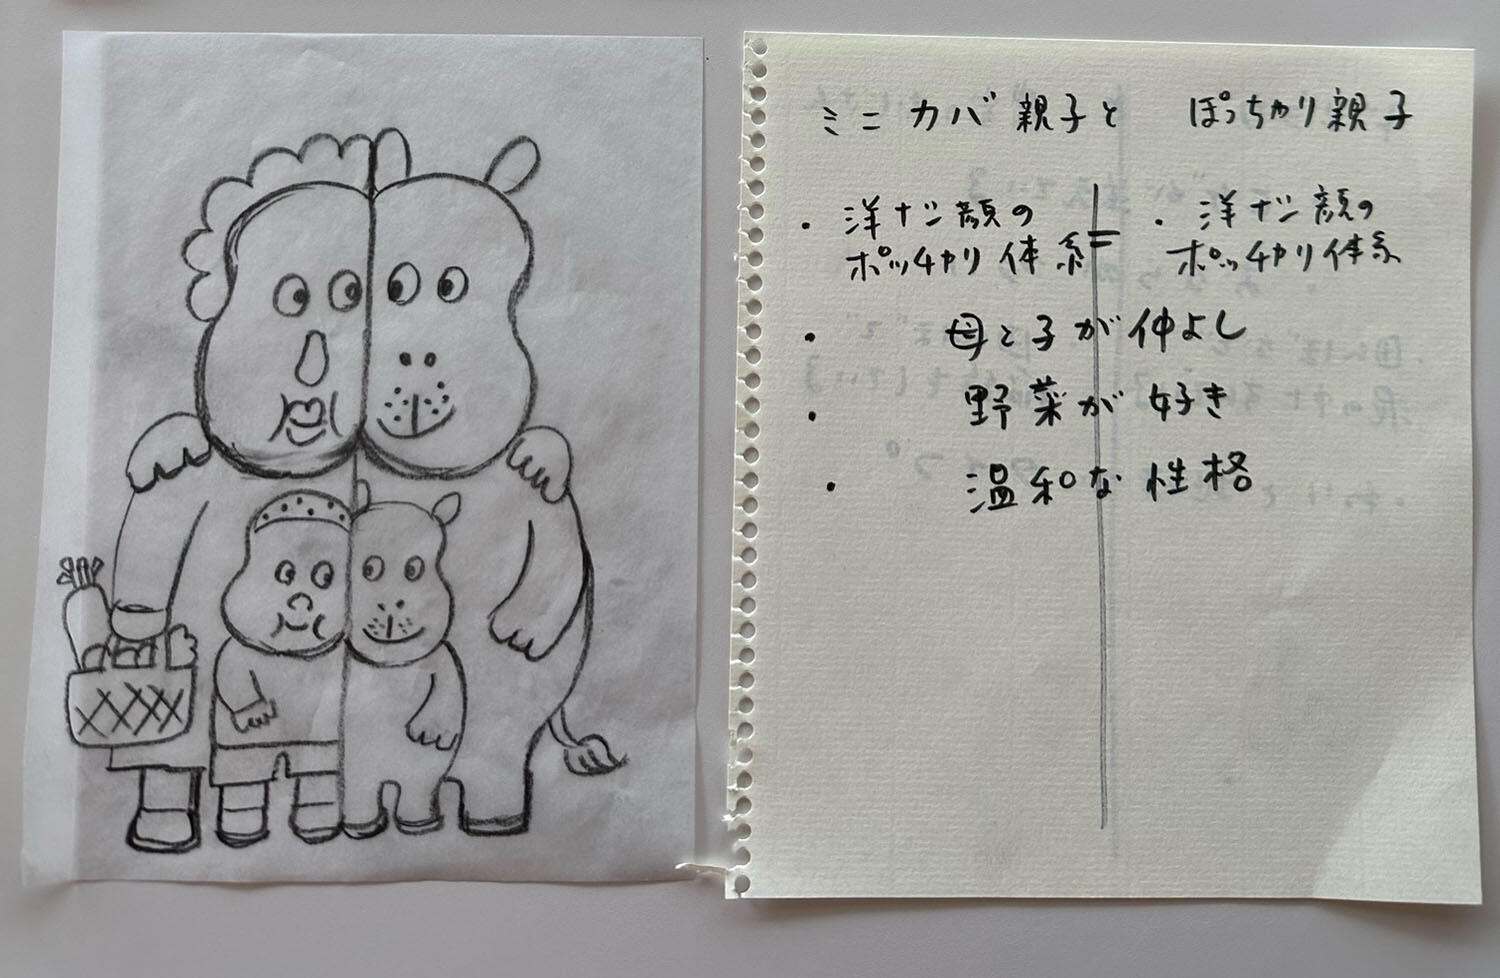 ミニカバ親子と ぽっちゃり親子
・洋ナシ顔の
ポッチャリ体系
=
・洋ナシ顔の
ポッチャリ体系
・母と子が仲よし
・野菜が好き
・温和な性格